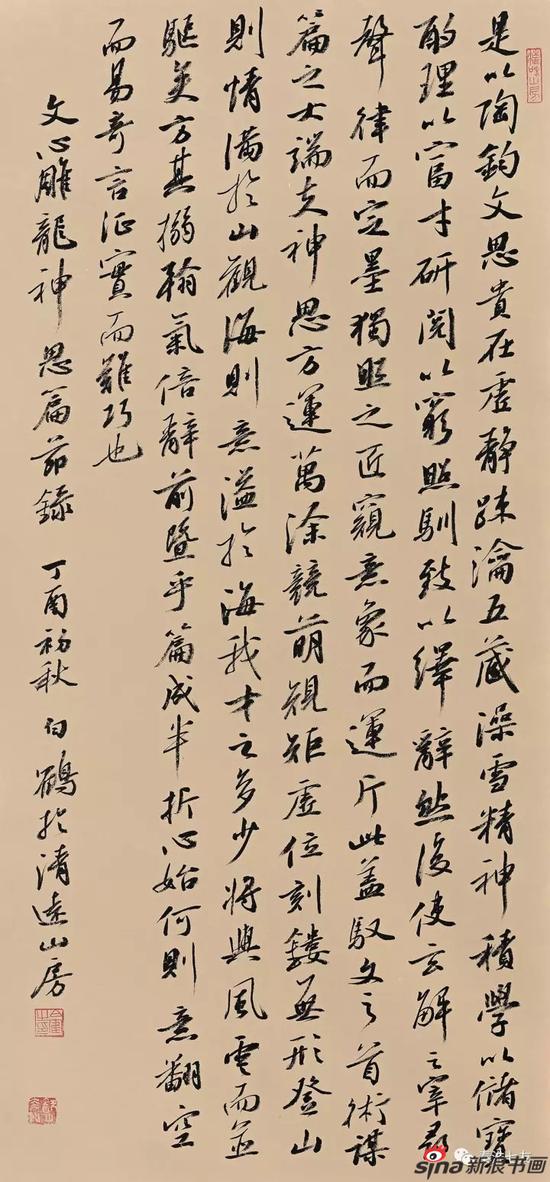 是以陶鈞文思貴在虛靜踈瀹五藏澡雪精神積學以儲寶
酌理以富才研閱以窮照馴致以繹辭然後使玄解之宰尋
聲律而定墨獨照之匠窺意象而運斤此蓋馭文之首術謀
篇之大端夫神思方運萬涂競萌規矩虛位刻鏤無形登山
則情滿於山觀海則意溢於海我才之多少將與風雲而並
驅矣方其搦翰氣倍辭前暨乎篇成半折心始何則意翻空
而易奇言征實而難巧也
文心雕龍神思篇節錄 丁酉初秋 白鶴於清遠山房
sina新浪书画